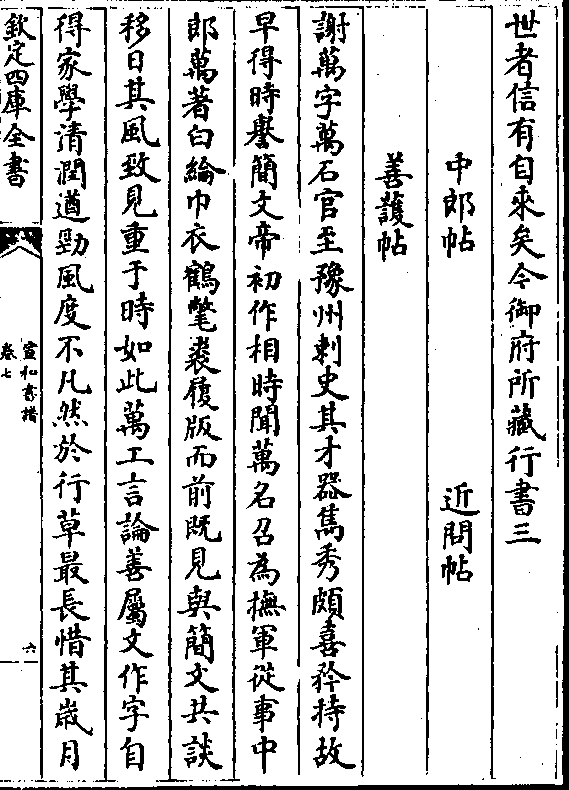 世者信有自來矣今御府所藏行書三
中郎帖　近問帖
善護帖
謝萬字萬石官至豫州刺史其才器雋秀頗喜矜持故
早得時譽簡文帝初作相時聞萬名召為撫軍從事中
郎萬著白綸巾衣鶴氅裘履版而前既見與簡文共談
移日其風致見重于時如此萬工言論善屬文作字自
得家學清潤遒勁風度不凡然於行草最長惜其歲月
欽定四庫全書
宣和書譜
卷七
六